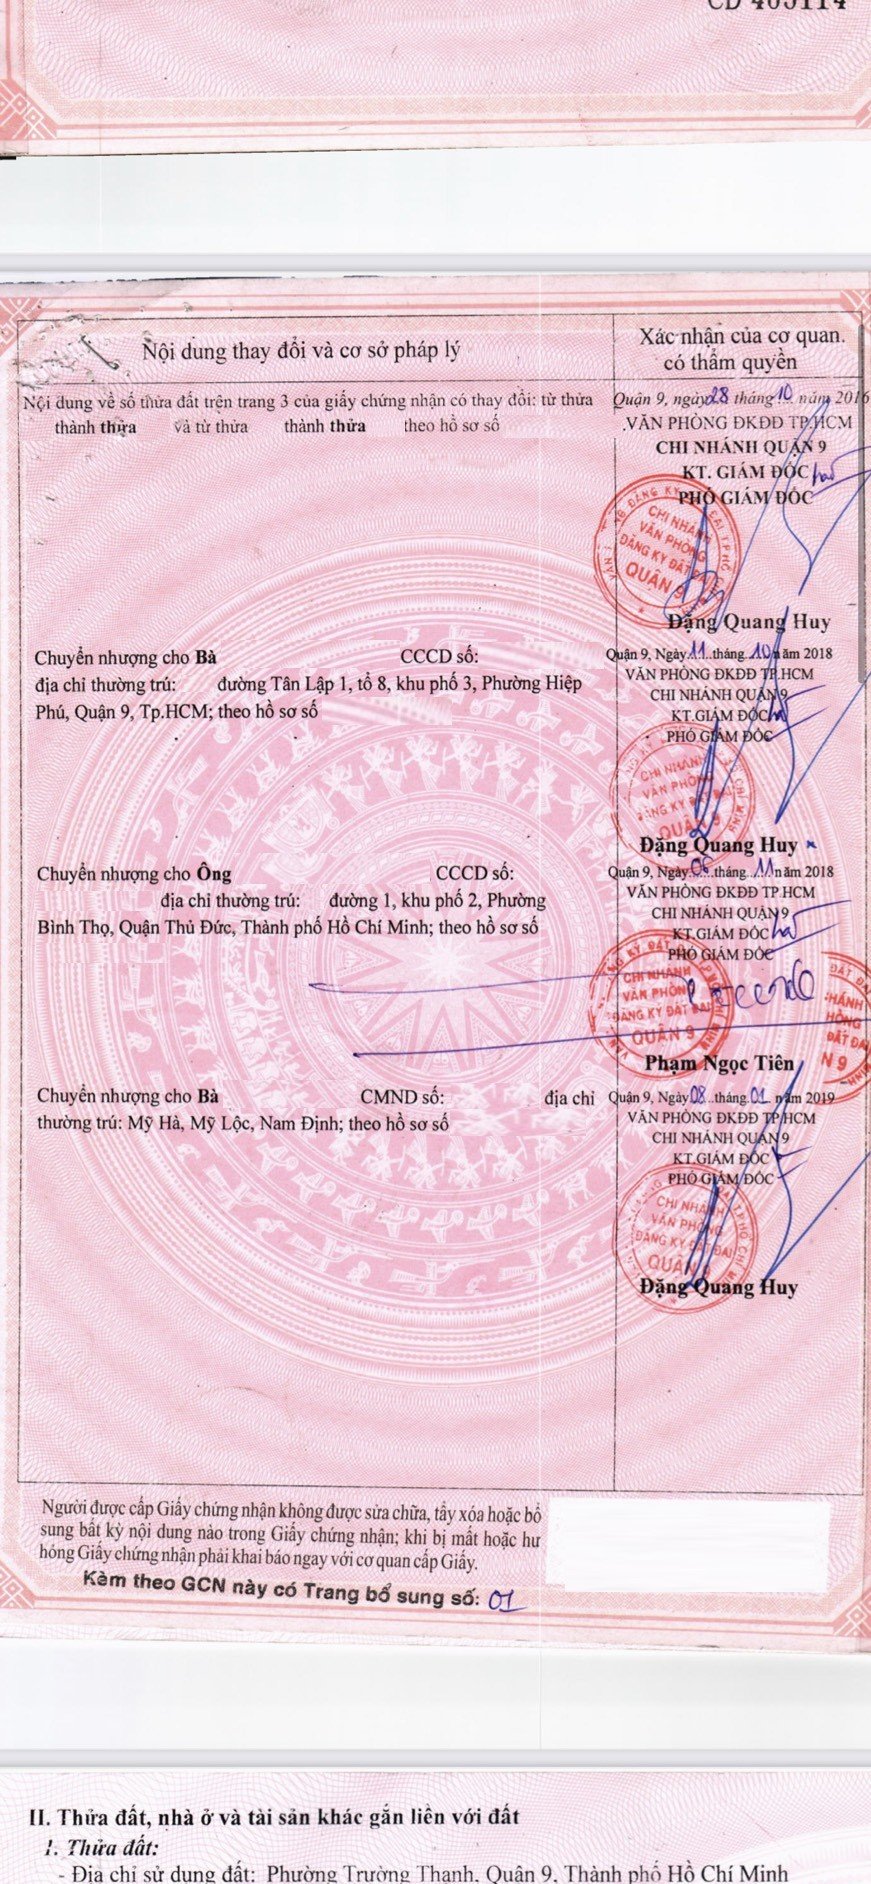 CD 405114
Nội dung thay đổi và cơ sở pháp lý
Xác nhận của cơ quan
có thẩm quyền
Nội dung về số thửa đất trên trang 3 của giấy chứng nhận có thay đổi: từ thửa
thành thửa và từ thửa thành thửa theo hồ sơ số
Quận 9, ngày 28 tháng 10 năm 2016
VĂN PHÒNG ĐKĐĐ TP.HCM
CHI NHÁNH QUẬN 9
KT. GIÁM ĐỐC
PHÓ GIÁM ĐỐC
CHI NHÁNH
VĂN PHÒNG
ĐĂNG KÝ ĐẤT ĐAI
QUẬN 9
Đặng Quang Huy
Chuyển nhượng cho Bà CCCD số:
địa chỉ thường trú: đường Tân Lập 1, tổ 8, khu phố 3, Phường Hiệp
Phú, Quận 9, Tp.HCM; theo hồ sơ số
Quận 9, Ngày 11 tháng 10 năm 2018
VĂN PHÒNG ĐKĐĐ TP.HCM
CHI NHÁNH QUẬN 9
KT.GIÁM ĐỐC
PHÓ GIÁM ĐỐC
CHI NHÁNH
VĂN PHÒNG
ĐĂNG KÝ ĐẤT ĐAI
QUẬN 9
Đặng Quang Huy
Chuyển nhượng cho Ông CCCD số:
địa chỉ thường trú: đường 1, khu phố 2, Phường
Bình Thọ, Quận Thủ Đức, Thành phố Hồ Chí Minh; theo hồ sơ số
Quận 9, Ngày 06 tháng 11 năm 2018
VĂN PHÒNG ĐKĐĐ TP.HCM
CHI NHÁNH QUẬN 9
KT.GIÁM ĐỐC
PHÓ GIÁM ĐỐC
CHI NHÁNH
VĂN PHÒNG
ĐĂNG KÝ ĐẤT ĐAI
QUẬN 9
Phạm Ngọc Tiên
Chuyển nhượng cho Bà CMND số: địa chỉ
thường trú: Mỹ Hà, Mỹ Lộc, Nam Định; theo hồ sơ số
Quận 9, Ngày 08 tháng 01 năm 2019
VĂN PHÒNG ĐKĐĐ TP.HCM
CHI NHÁNH QUẬN 9
KT.GIÁM ĐỐC
PHÓ GIÁM ĐỐC
CHI NHÁNH
VĂN PHÒNG
ĐĂNG KÝ ĐẤT ĐAI
QUẬN 9
Đặng Quang Huy
Người được cấp Giấy chứng nhận không được sửa chữa, tẩy xóa hoặc bổ
sung bất kỳ nội dung nào trong Giấy chứng nhận; khi bị mất hoặc hư
hỏng Giấy chứng nhận phải khai báo ngay với cơ quan cấp Giấy.
Kèm theo GCN này có Trang bổ sung số: 01
II. Thửa đất, nhà ở và tài sản khác gắn liền với đất
1. Thửa đất:
- Địa chỉ sử dụng đất: Phường Trường Thạnh, Quận 9, Thành phố Hồ Chí Minh